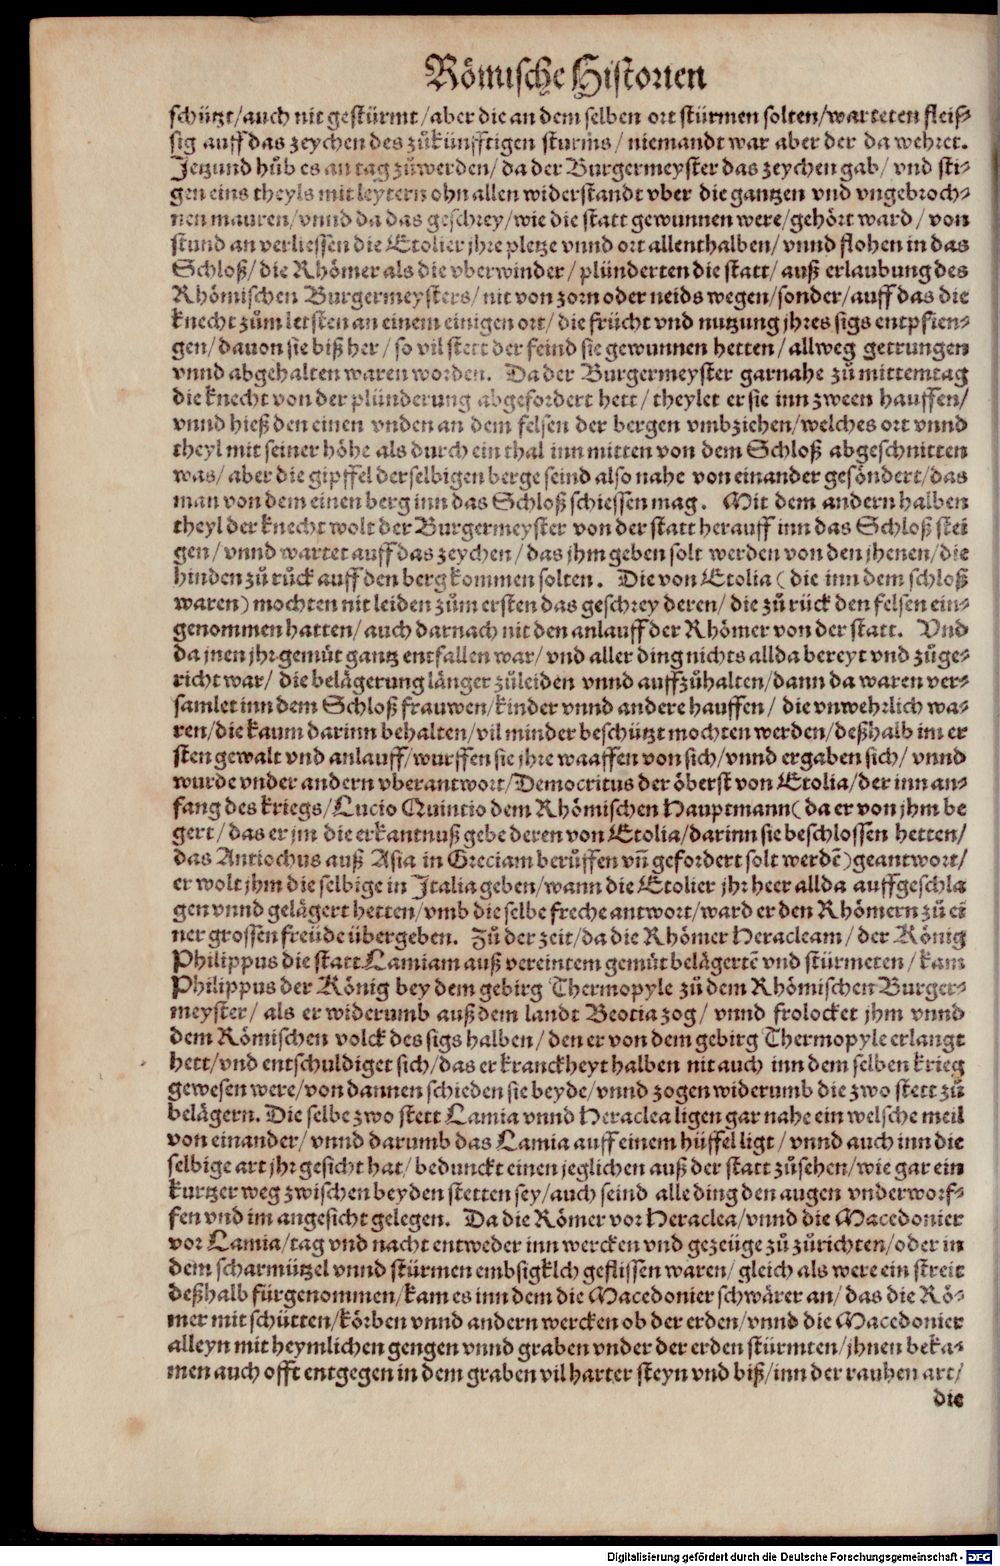 Römische Historien
schützt/auch nit gestürmt/aber die an dem selben ort stürmen solten/warteten fleis-
sig auff das zeychen des zůkünfftigen sturms/ niemandt war aber der da wehret.
Jetzund hůb es an tag zůwerden/ da der Burgermeyster das zeychen gab/ vnd sti-
gen eins theyls mit leytern ohn allen widerstandt vber die gantzen vnd vngebroch-
nen mauren/vnnd da das geschrey/wie die statt gewunnen were/gehört ward/ von
stund an verliessen die Etolier jhre pletze vnnd ort allenthalben/vnnd flohen in das
Schloß/die Rhömer als die vberwinder/plünderten die statt/ auß erlaubung des
Rhömischen Burgermeysters/nit von zorn oder neids wegen/sonder/auff das die
knecht zům letsten an einem einigen ort/ die frücht vnd nutzung jhres sigs entpfien-
gen/davon sie biß her/ so vil stett der feind sie gewunnen hetten/ allweg getrungen
vnnd abgehalten waren worden. Da der Burgermeyster garnahe zů mittemtag
die knecht von der plünderung abgefordert hett/ theylet er sie inn zween hauffen/
vnnd hieß den einen vnden an dem felsen der bergen vmbziehen/welches ort vnnd
theyl mit seiner höhe als durch ein thal inn mitten von dem Schloß abgeschnitten
was/aber die gipffel derselbigen berge seind also nahe von einander gesöndert/das
man von dem einen berg inn das Schloß schiessen mag. Mit dem andern halben
theyl der knecht wolt der Burgermeyster von der statt herauff inn das Schloß stei
gen/vnnd wartet auff das zeychen/das jhm geben solt werden von den jhenen/die
hinden zů rück auff den berg kommen solten. Die von Etolia (die inn dem schloß
waren) mochten nit leiden zům ersten das geschrey deren/ die zů rück den felsen ein-
genommen hatten/auch darnach nit den anlauff der Rhömer von der statt. Vnd
da jnen jhr gemüt gantz entfallen war/ vnd aller ding nichts allda bereyt vnd zůge-
richt war/ die belägerung länger zůleiden vnnd auffzůhalten/dann da waren ver-
samlet inn dem Schloß frauwen/kinder vnnd andere hauffen/ die vnwehrlich wa-
ren/die kaum darinn behalten/vil minder beschützt mochten werden/deßhalb im er
sten gewalt vnd anlauff/wurffen sie jhre waaffen von sich/vnnd ergaben sich/ vnnd
wurde vnder andern vberantwort/Democritus der öberst von Etolia/der inn an-
fang des kriegs/Lucio Quintio dem Rhömischen Hauptmann(da er von jhm be
gert/das er jm die erkantnuß gebe deren von Etolia/darinn sie beschlossen hetten/
das Antiochus auß Asia in Greciam berůffen vñ gefordert solt werdē)geantwort/
er wolt jhm die selbige in Italia geben/wann die Etolier jhr heer allda auffgeschla
gen vnnd gelägert hetten/vmb die selbe freche antwort/ward er den Rhömern zů ei
ner grossen freüde übergeben. Zů der zeit/da die Rhömer Heracleam/der König
Philippus die statt Lamiam auß vereintem gemüt belägertē vnd stürmeten/kam
Philippus der König bey dem gebirg Thermopyle zů dem Rhömischen Burger-
meyster/ als er widerumb auß dem landt Beotia zog/ vnnd frolocket jhm vnnd
dem Römischen volck des sigs halben/den er von dem gebirg Thermopyle erlangt
hett/vnd entschuldiget sich/das er kranckheyt halben nit auch inn dem selben krieg
gewesen were/von dannen schieden sie beyde/vnnd zogen widerumb die zwo stett zů
belägern. Die selbe zwo stett Lamia vnnd Heraclea ligen gar nahe ein welsche meil
von einander/vnnd darumb das Lamia auff einem hüffel ligt/vnnd auch inn die
selbige art jhr gesicht hat/ bedunckt einen jeglichen auß der statt zůsehen/wie gar ein
kurtzer weg zwischen beyden stetten sey/auch seind alle ding den augen vnderworf-
fen vnd im angesicht gelegen. Da die Römer vor Heraclea/vnnd die Macedonier
vor Lamia/tag vnd nacht entweder inn wercken vnd gezeüge zů zůrichten/oder in
dem scharmützel vnnd stürmen embsigklch geflissen waren/ gleich als were ein streit
deßhalb fürgenommen/kam es inn dem die Macedonier schwärer an/das die Rö-
mer mit schütten/körben vnnd andern wercken ob der erden/vnnd die Macedonier
alleyn mit heymlichen gengen vnnd graben vnder der erden stürmten/jhnen beka-
men auch offt entgegen in dem graben vil harter steyn vnd biß/inn der rauhen art/
die
Digitalisierung gefördert durch die Deutsche Forschungsgemeinschaft - DFG